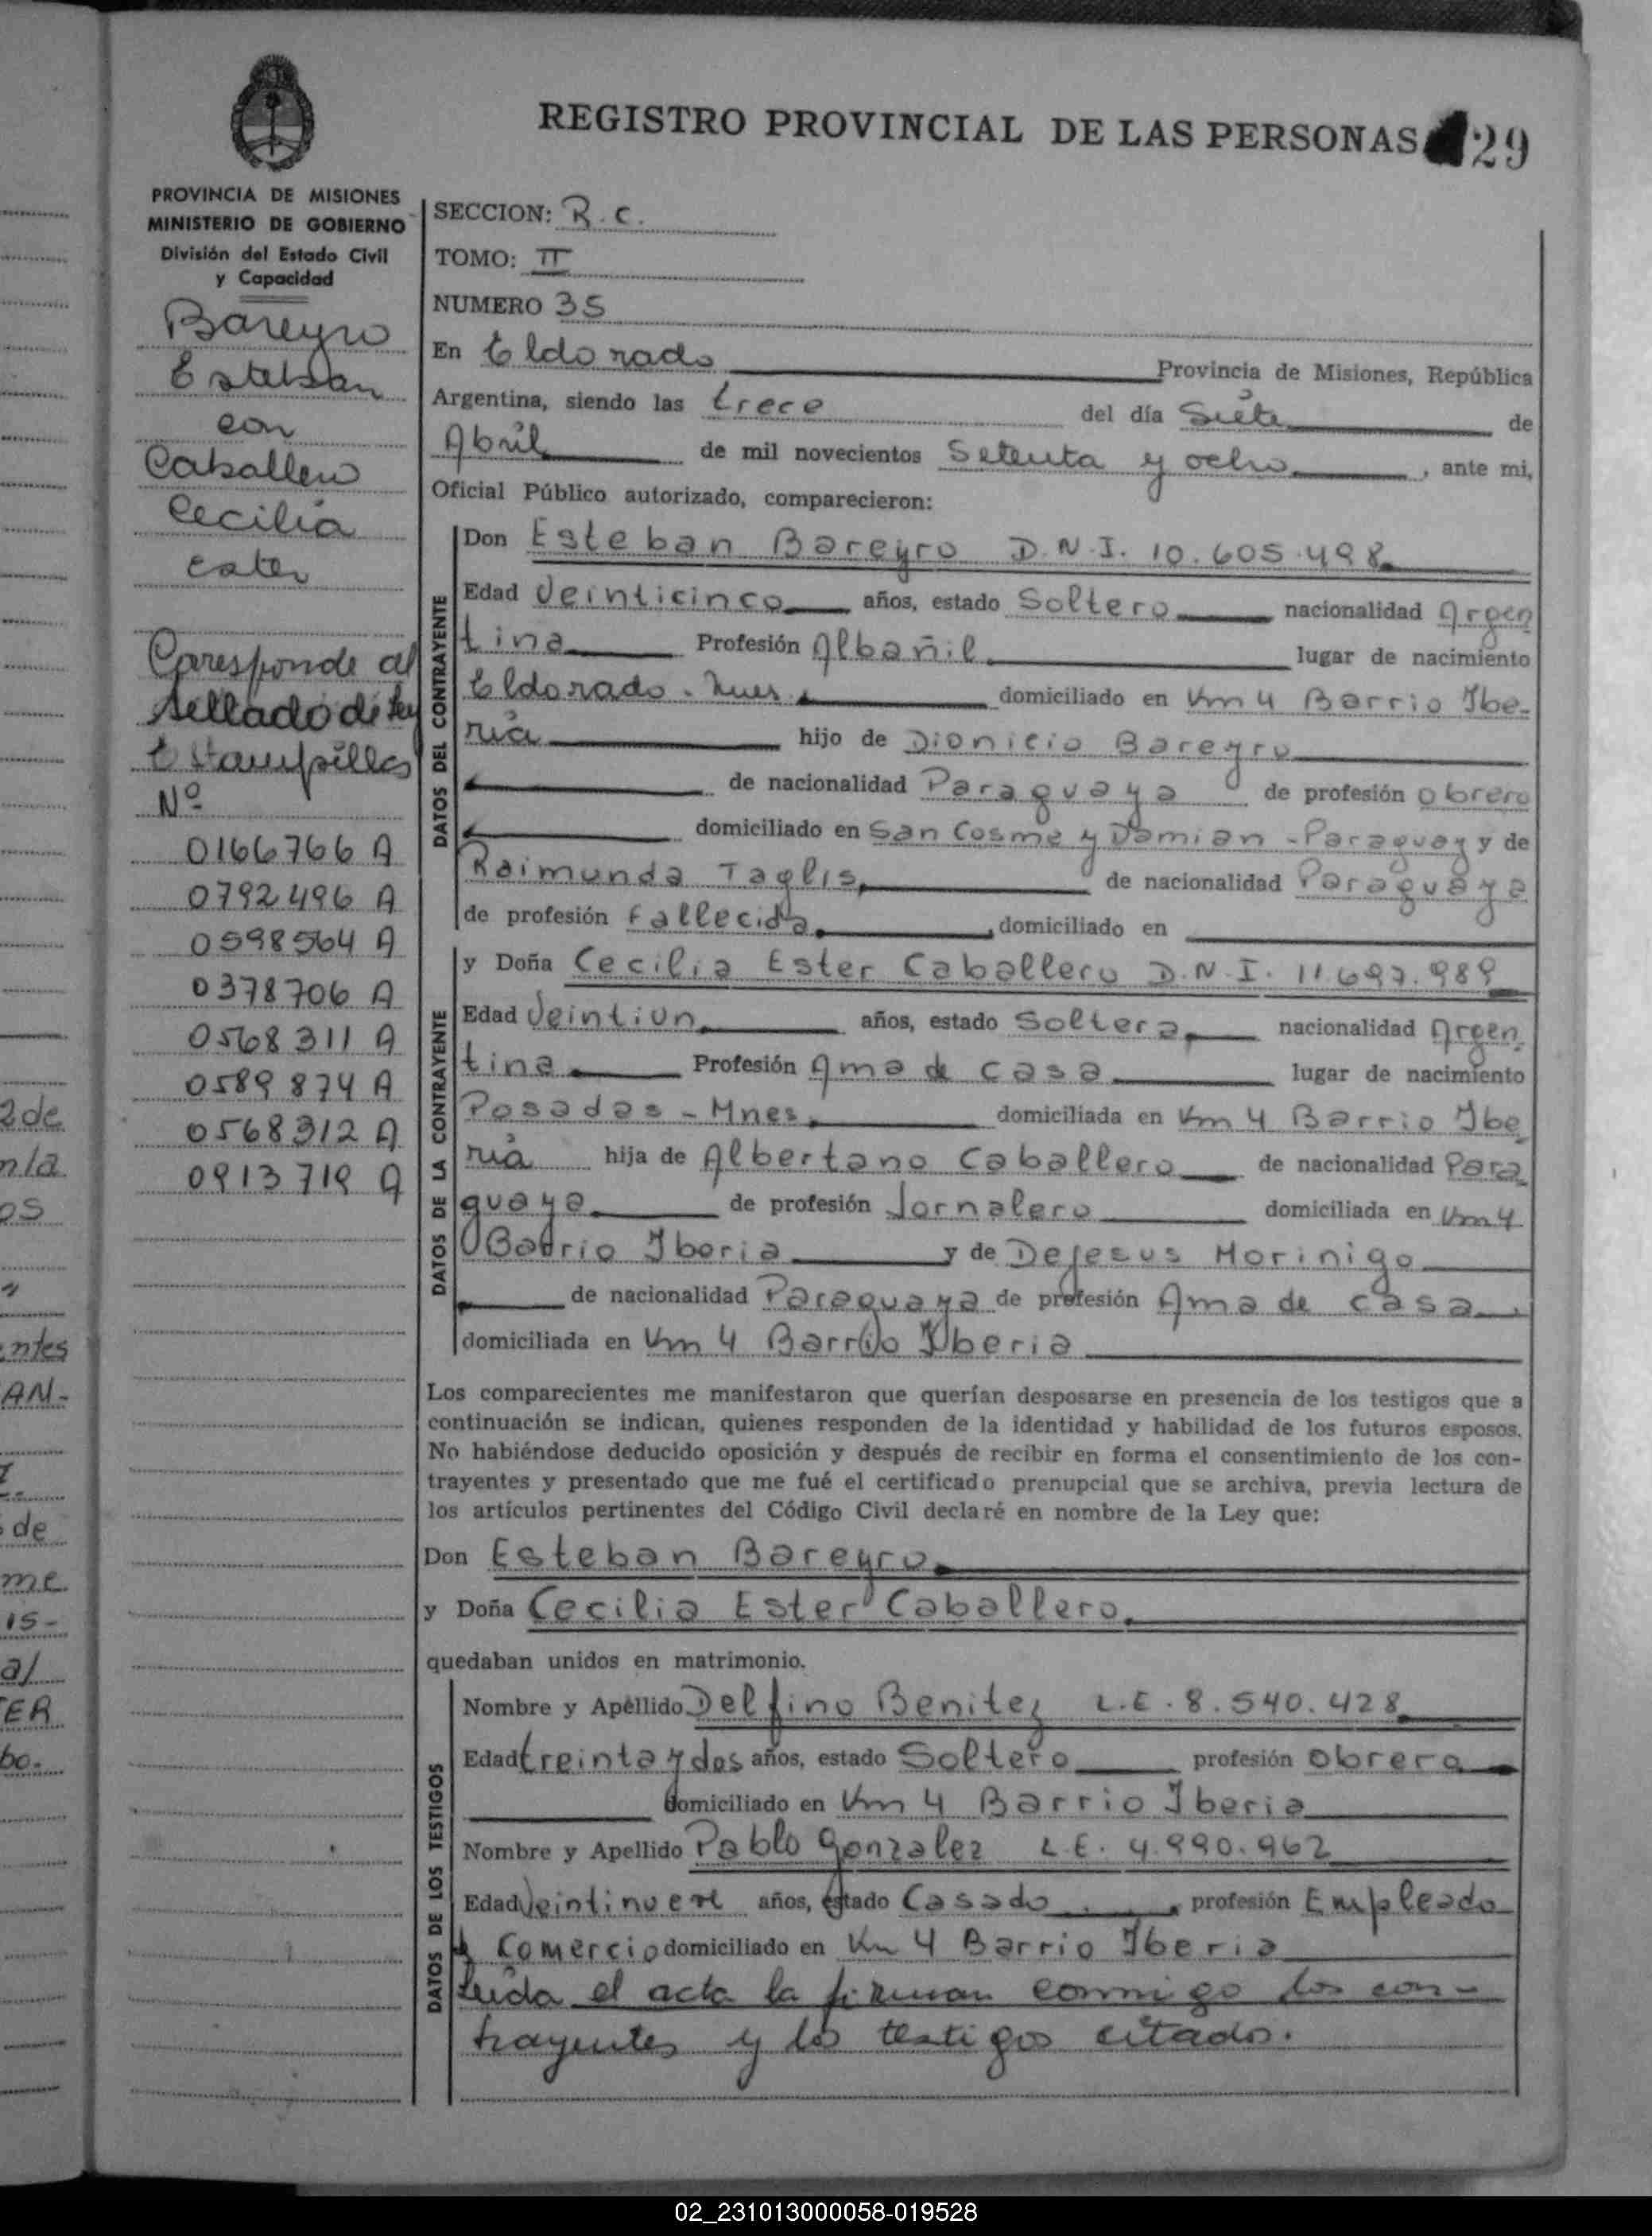 REGISTRO PROVINCIAL DE LAS PERSONAS 29
PROVINCIA DE MISIONES
MINISTERIO DE GOBIERNO
División del Estado Civil
y Capacidad
Bareyro
Esteban
con
Caballero
Cecilia
ester
Coresponde al
sellado de ley
Estampillas
Nº
0166766 A
0792496 A
0598564 A
0378706 A
0568311 A
0589874 A
0568312 A
0913719 A
SECCION: R.C.
TOMO: II
NUMERO 35
En Eldorado Provincia de Misiones, República
Argentina, siendo las trece del día Siete de
Abril de mil novecientos Setenta y ocho, ante mi,
Oficial Público autorizado, comparecieron:
DATOS DEL CONTRAYENTE
Don Esteban Bareyro D.N.I. 10.605.498
Edad Veinticinco años, estado Soltero nacionalidad Argen
tina Profesión Albañil lugar de nacimiento
Eldorado. Mnes. domiciliado en Km 4 Barrio Ibe-
ria hijo de Dionicio Bareyro
de nacionalidad Paraguaya de profesión obrero
domiciliado en San Cosme y Damian - Paraguay y de
Raimunda Taglis, de nacionalidad Paraguaya
de profesión Fallecida, domiciliado en
DATOS DE LA CONTRAYENTE
y Doña Cecilia Ester Caballero D.N.I. 11.697.989
Edad Veintiun, años, estado Soltera, nacionalidad Argen,
tina Profesión Ama de casa lugar de nacimiento
Posadas - Mnes, domiciliada en Km 4 Barrio Ibe
ria hija de Albertano Caballero de nacionalidad Para
guaya de profesión Jornalero domiciliada en Km 4
Barrio Iberia y de Dejesus Morinigo
de nacionalidad Paraguaya de profesión Ama de casa
domiciliada en Km 4 Barrio Iberia
Los comparecientes me manifestaron que querían desposarse en presencia de los testigos que a
continuación se indican, quienes responden de la identidad y habilidad de los futuros esposos.
No habiéndose deducido oposición y después de recibir en forma el consentimiento de los con-
trayentes y presentado que me fué el certificado prenupcial que se archiva, previa lectura de
los artículos pertinentes del Código Civil declaré en nombre de la Ley que:
Don Esteban Bareyro
y Doña Cecilia Ester Caballero,
quedaban unidos en matrimonio.
DATOS DE LOS TESTIGOS
Nombre y Apéllido Delfino Benitez L.E. 8.540.428
Edad treinta y dos años, estado Soltero profesión Obrero
domiciliado en Km 4 Barrio Iberia
Nombre y Apellido Pablo Gonzalez L.E. 4.990.962
Edad Veintinueve años, estado Casado profesión Empleado
Comercio domiciliado en Km 4 Barrio Iberia
Leida el acta la firman conmigo los con-
trayentes y los testigos citados.
2 de
n/a
os
ntes
AN-
de
me
is-
al
ER
bo.
02_231013000058-019528